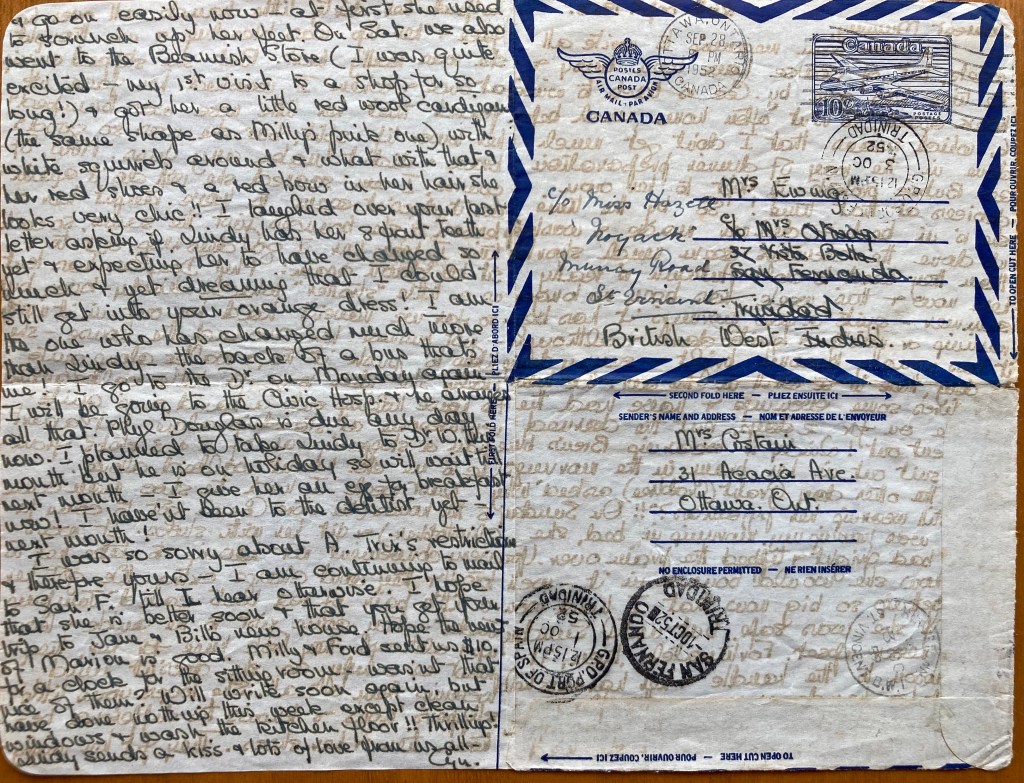 & go on easily now – at first she used
to scrunch up her feet. On Sat. we also
went to the Beamish Store (I was quite
excited – my 1st visit to a shop for so
long!) & got her a little red wool cardigan
(the same shape as Milly's pink one) with
white squirrels around & what with that &
her red shoes & a red bow in her hair she
looks very chic!! I laughed over your last
letter asking if Lindy has her 8 front teeth
yet & expecting her to have changed so
much & yet dreaming that I could
still get into your orange dress! I am
the one who has changed much more
than Lindy – the back of a bus that's
me! I go to the Dr. on Monday again.
I will be going to the Civic Hosp. & he arranges
all that. Phyl Douglas is due any day
now. I planned to take Lindy to Dr. W. this
month but he is on holiday so will wait till
next month – I give her an egg for breakfast
now! I haven't been to the dentist yet –
next month!
I was so sorry about A. Trix's restriction
& therefore yours – I am continuing to mail
to San F. till I hear otherwise. I hope
that she is better soon & that you get your
trip to Jane & Bill's new house. Hope the news
of Marion is good. Milly & Ford sent us $10.
for a clock for the sitting room – wasn't that
nice of them? Will write soon again, but
have done nothing this week except clean
windows & wash the kitchen floor!! Thrilling!
Lindy sends a kiss & lots of love from us all –
Cyn.
POSTES
CANADA
POST
AIR MAIL · PAR AVION
CANADA
OTTAWA, ONTARIO
SEP 28
PM
1952
CANADA
Canada
10¢
POSTAGE
G.P.O. PORT OF SPAIN
12.15 PM
3 OC
52
TRINIDAD
Mrs Ewing
c/o Mrs
Vista Bella
San Fernando
Trinidad
British West Indies.
c/o Miss Hazell
"Noyack"
Murray Road
St. Vincent
TO OPEN CUT HERE — POUR OUVRIR, COUPEZ ICI
FIRST FOLD HERE — PLIEZ D'ABORD ICI
SECOND FOLD HERE — PLIEZ ENSUITE ICI
SENDER'S NAME AND ADDRESS — NOM ET ADRESSE DE L'ENVOYEUR
Mrs Costain
31 Acacia Ave.
Ottawa. Ont.
NO ENCLOSURE PERMITTED — NE RIEN INSÉRER
G.P.O. PORT OF SPAIN
12.15 PM
1 OC
52
TRINIDAD
SAN FERNANDO
1 OCT 52
TRINIDAD
ST. VINCENT
TO OPEN CUT HERE — POUR OUVRIR, COUPEZ ICI